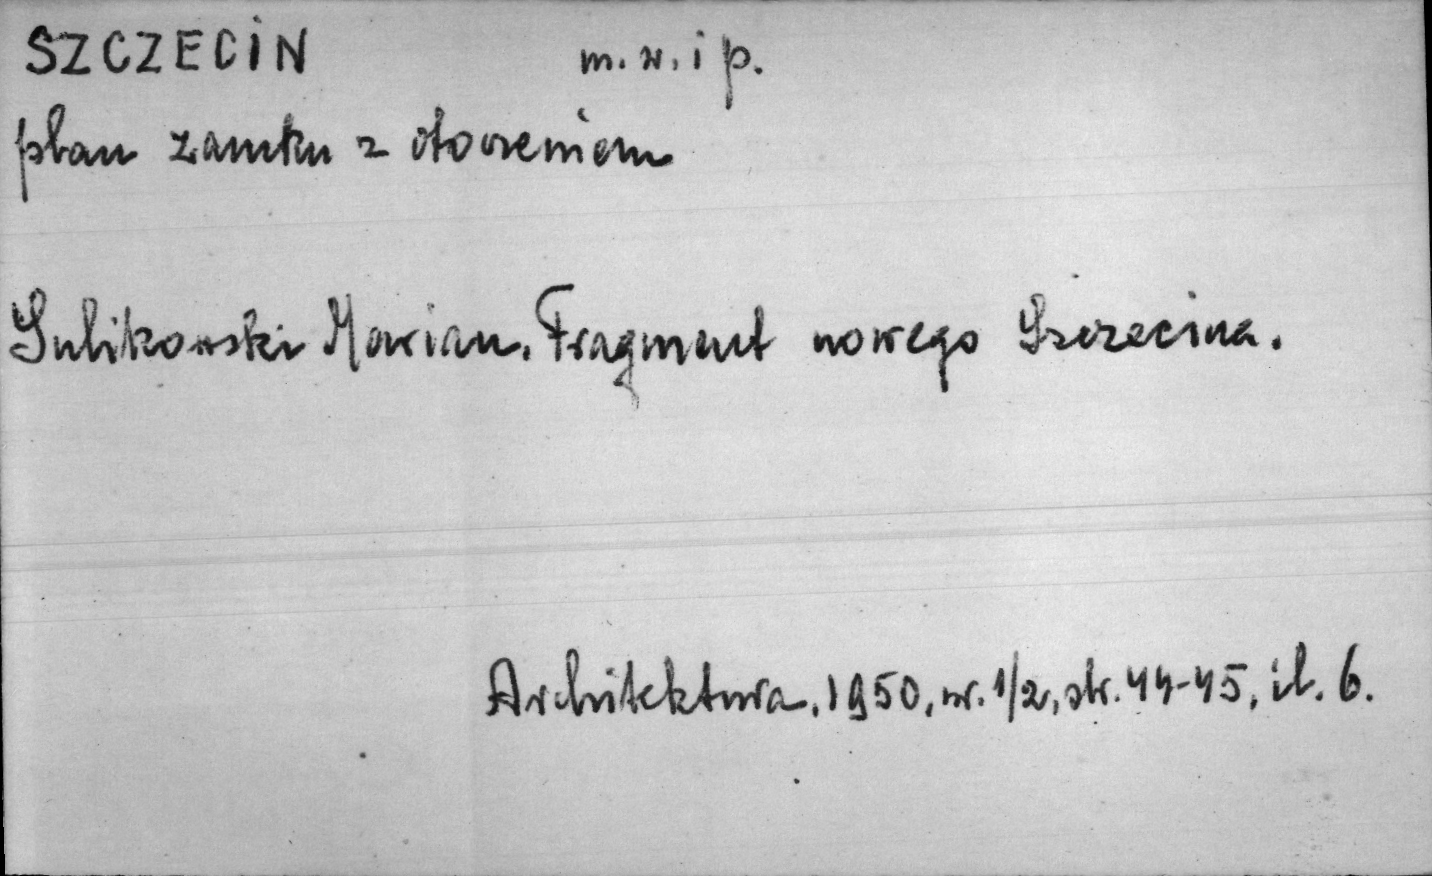 SZCZECIN m. w. i p.
plan zamku z otoczeniem
Sulikowski Marian. Fragment nowego Szczecina.
Architektura, 1950, nr. 1/2, str. 44-45, il. 6.